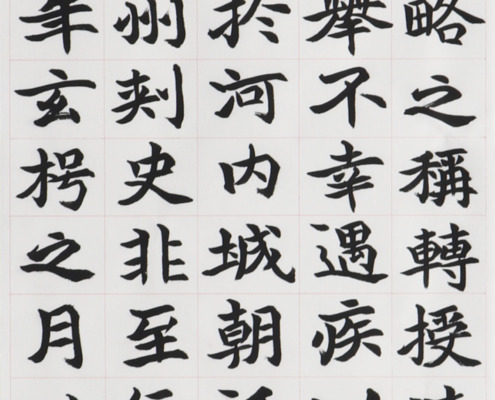 略之稱轉授
舉不幸遇疾
扵河内城朝
州刾史非至
年玄枵之月